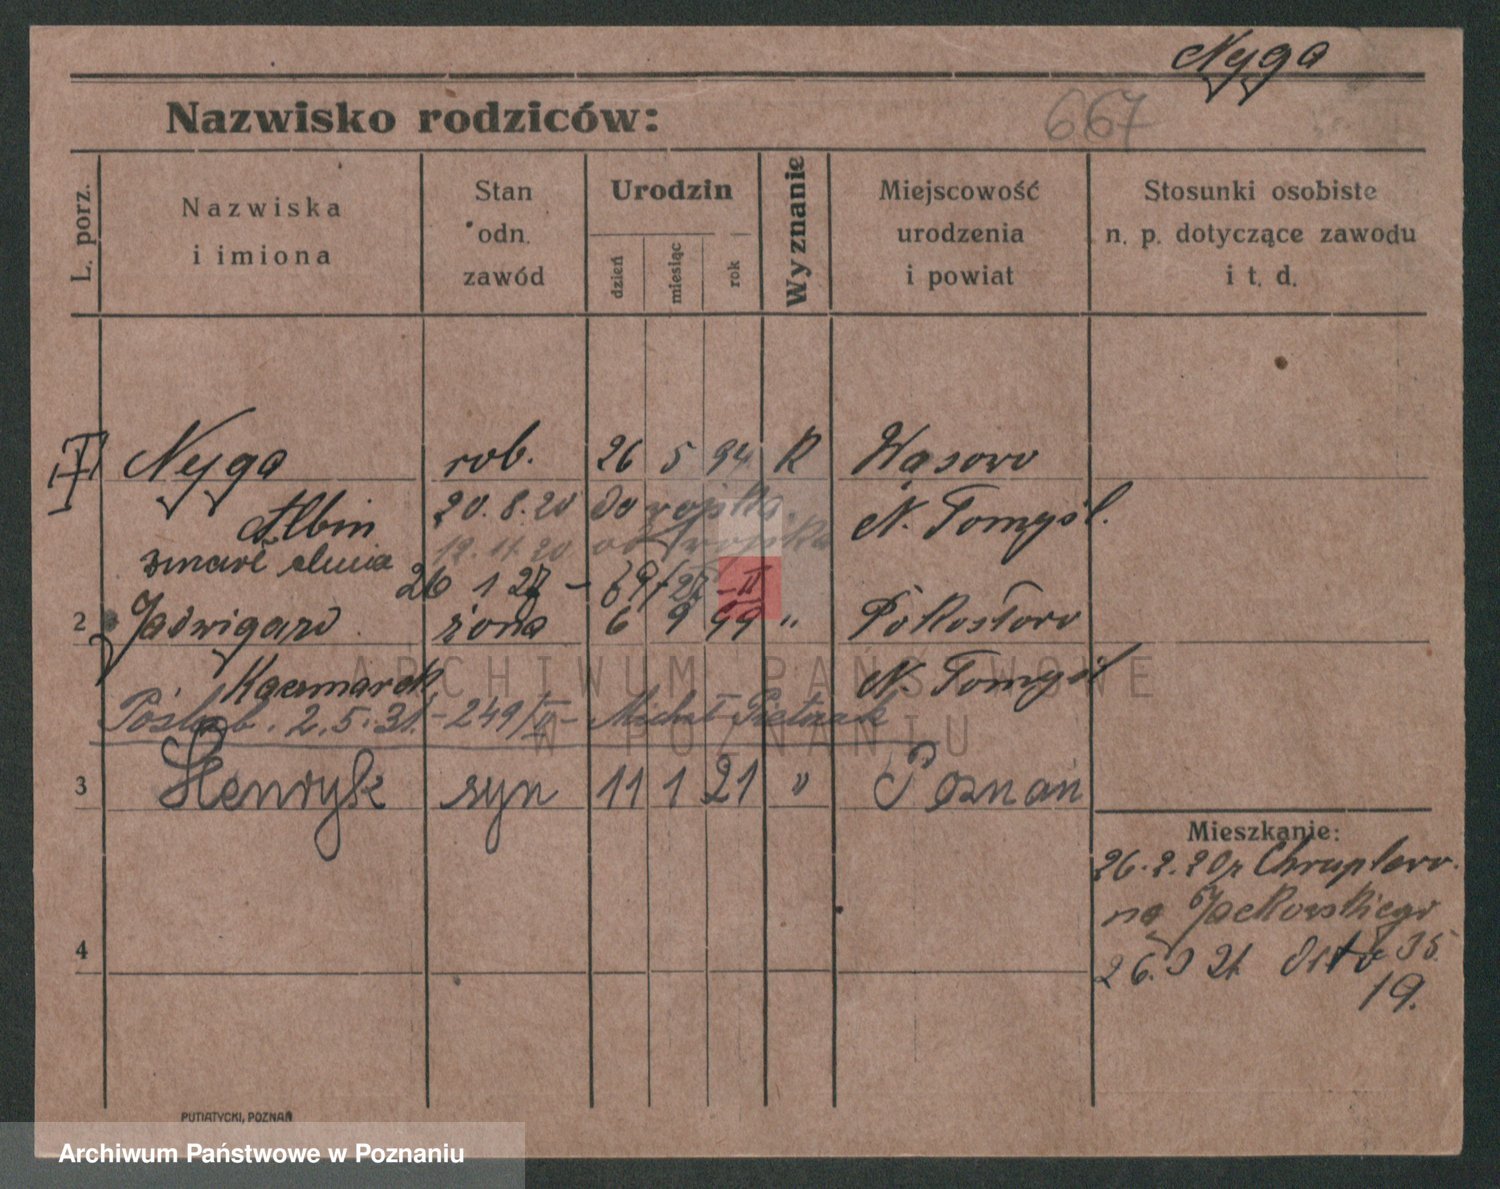 Nyga
Nazwisko rodziców:
667
L. porz.
Nazwiska i imiona
Stan odn. zawód
Urodzin
dzień miesiąc rok
Wyznanie
Miejscowość urodzenia i powiat
Stosunki osobiste n. p. dotyczące zawodu i t. d.
Nyga rob. 26 5 94 K Wąsowo
Albin 20.8.20 do wojska. N. Tomyśl.
12.11.20 od wojska
zmarł dnia
26 1 27 – 89/27 – II
2 Jadwiga żona 6 9 99 "
Kaczmarek N. Tomyśl
Poślub. 2.5.31. – 249/II – Michał Pietrzak
3 Henryk syn 11 1 21 " Poznań
4
Mieszkanie:
26.2.20 z
na Jackowskiego 35.
26. 21 dito 19.
PUTIATYCKI, POZNAŃ
ARCHIWUM PAŃSTWOWE
W POZNANIU
Archiwum Państwowe w Poznaniu